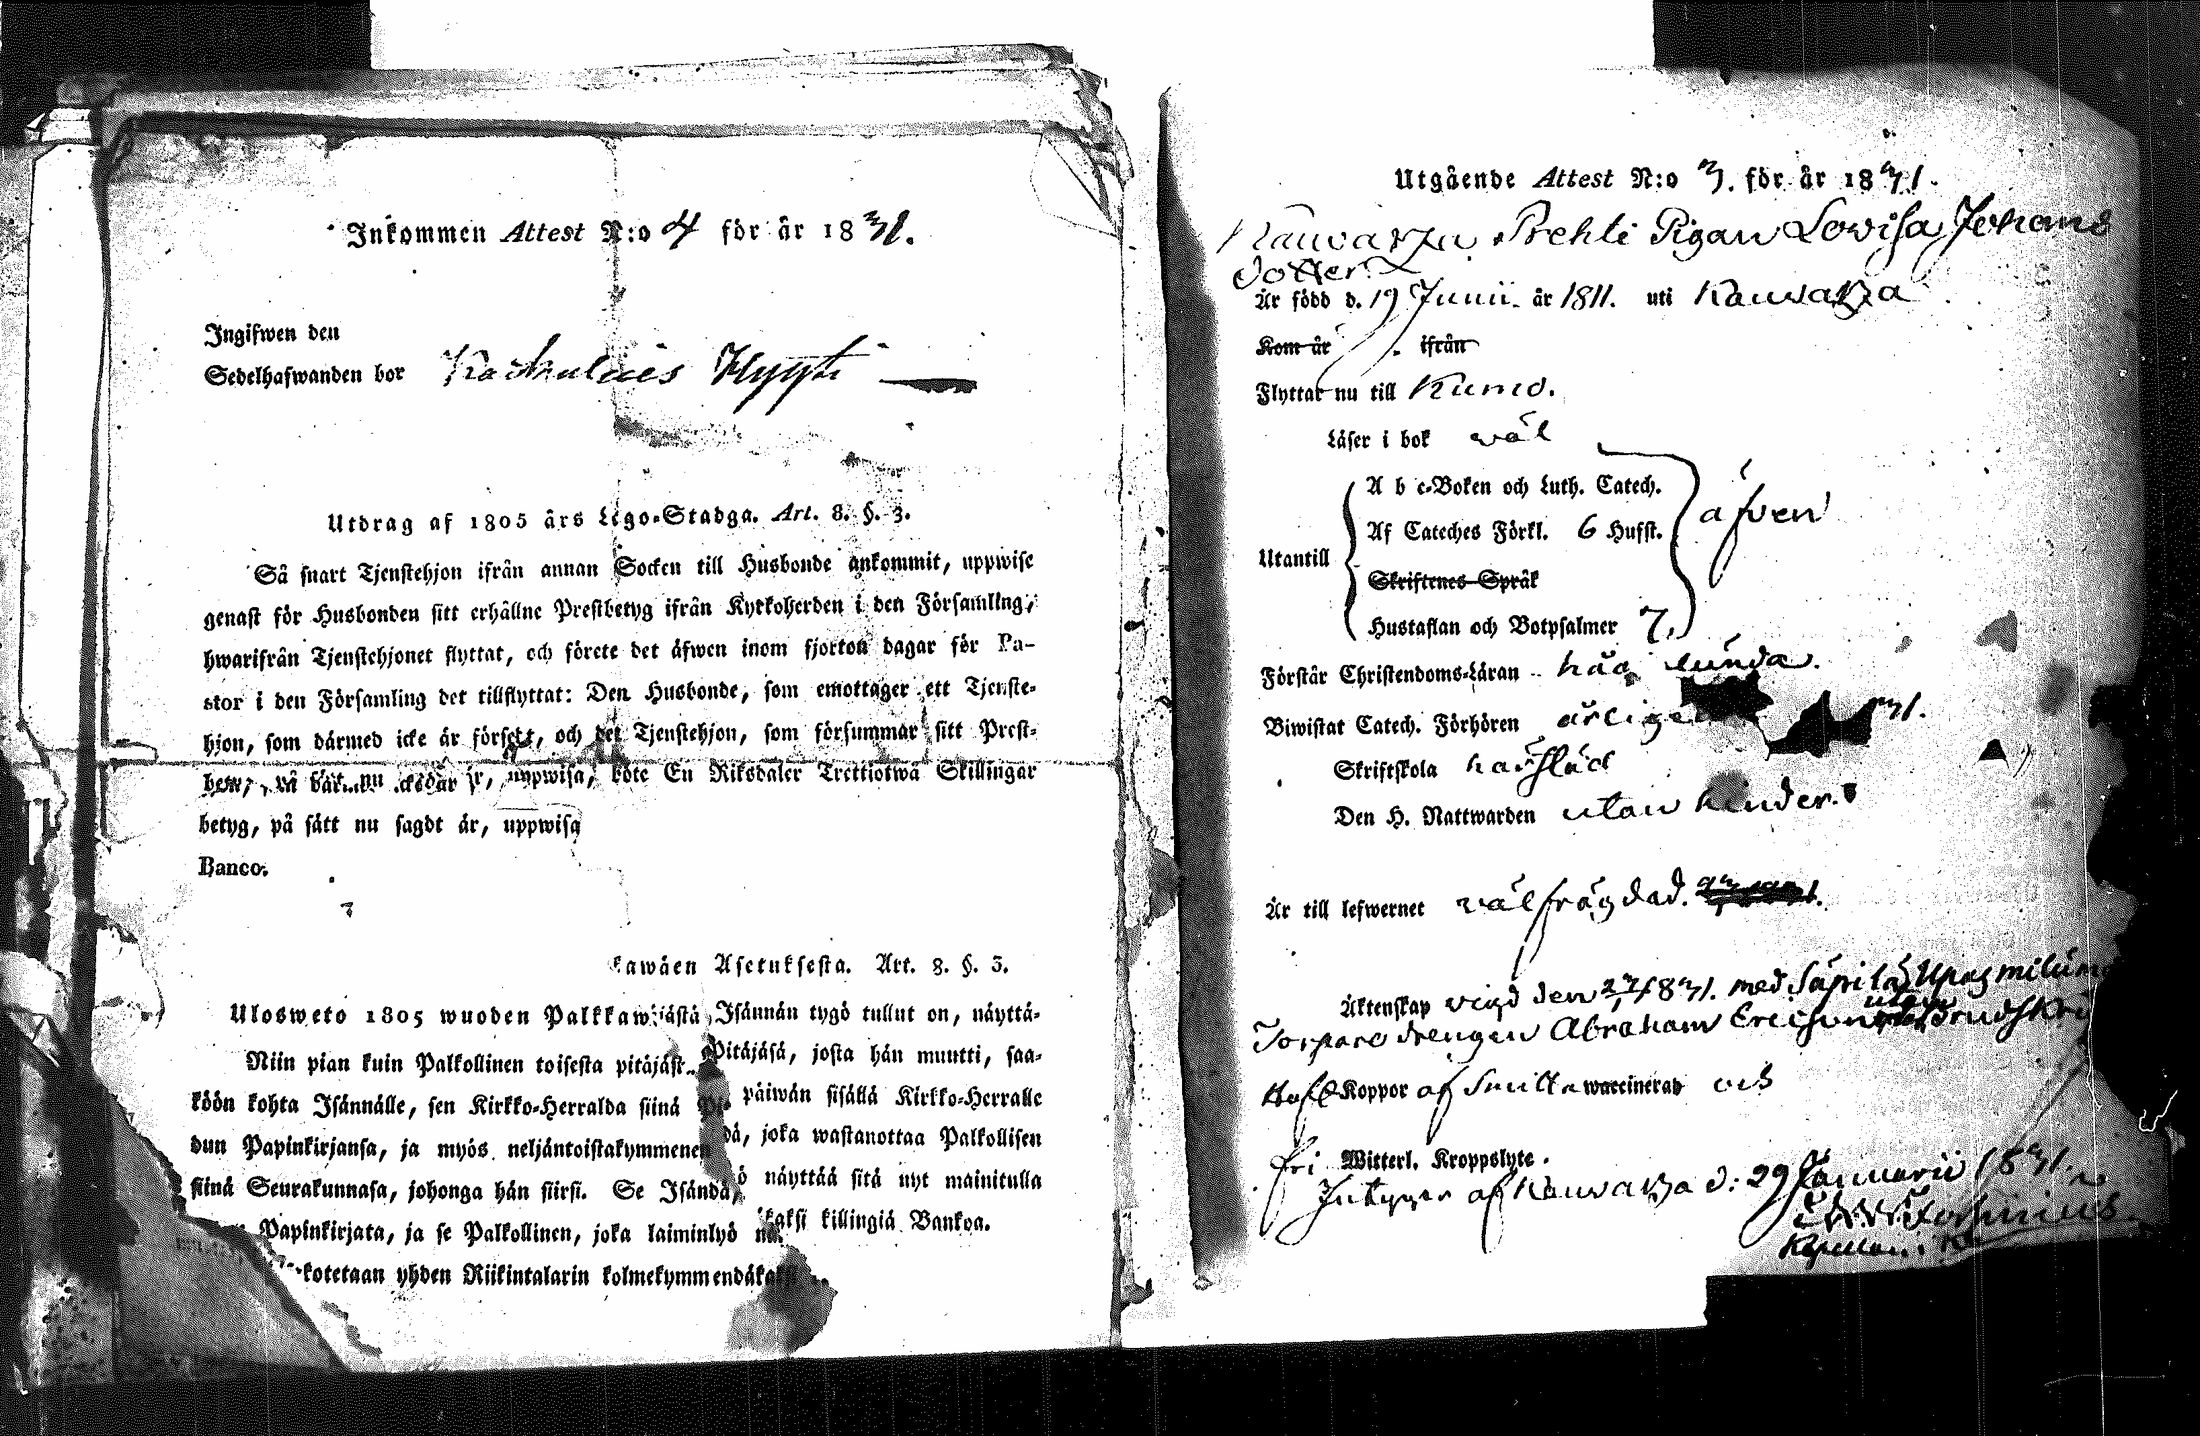 Inkommen Attest N:o 4 för år 1831.
Ingifwen den
Sedelhafwanden bor Hyyti
Utdrag af 1805 års Lego-Stadga. Art. 8. §. 3.
Så snart Tjenstehjon ifrån annan Socken till Husbonde ankommit, uppwise
genast för Husbonden sitt erhållne Prestbetyg ifrån Kyrkoherden i den Församling,
hwarifrån Tjenstehjonet flyttat, och förete det äfwen inom fjorton dagar för Pa-
stor i den Församling det tillflyttat: Den Husbonde, som emottager ett Tjenste-
hjon, som därmed icke är försett, och det Tjenstehjon, som försummar sitt Prest-
uppwisa, böte En Riksdaler Trettiotwå Skillingar
betyg, på sätt nu sagdt är, uppwisa
Banco.
kawäen Asetuksesta. Art. 8. §. 3.
Ulosweto 1805 wuoden Palkkaw Isännän tygö tullut on, näyttä-
Niin pian kuin Palkollinen toisesta pitäjäst Pitäjäsä, josta hän muutti, saa-
köön kohta Isännälle, sen Kirkko-Herralda siinä päiwän sisällä Kirkko-Herralle
dun Papinkirjansa, ja myös neljäntoistakymmenen dä, joka wastanottaa Palkollisen
siinä Seurakunnasa, johonga hän siirsi. Se Isändä, näyttää sitä nyt mainitulla
Papinkirjata, ja se Palkollinen, joka laiminlyö kaksi killingiä Bankoa.
kotetaan yhden Riikintalarin kolmekymmendäkaksi
Utgående Attest N:o 3. för år 1831.
Kauvatza Prehti Pigan Lovisa Johans
dotter
Är född d. 19 Junii år 1811. uti Kauvatza
Kom år ifrån
Flyttar nu till Kumo.
Läser i bok wäl
A b c-Boken och Luth. Catech.
Af Cateches Förkl. 6 Hufst. äfven
Utantill
Skriftenes Språk
Hustaflan och Botpsalmer 7,
Förstår Christendoms-Läran lunda.
Biwistat Catech. Förhören årligen 31.
Skriftskola
Den H. Nattwarden utan hinder.
Är till lefwernet välfrägdad.
Äktenskap vigd den 1831. med
Torpare drengen Abraham Ericsson
Haft Koppor af waccinerad och
fri Witterl. Kroppslyte.
Intygar af Kauvatza d: 29 Januarii 1831.
Kapellan i